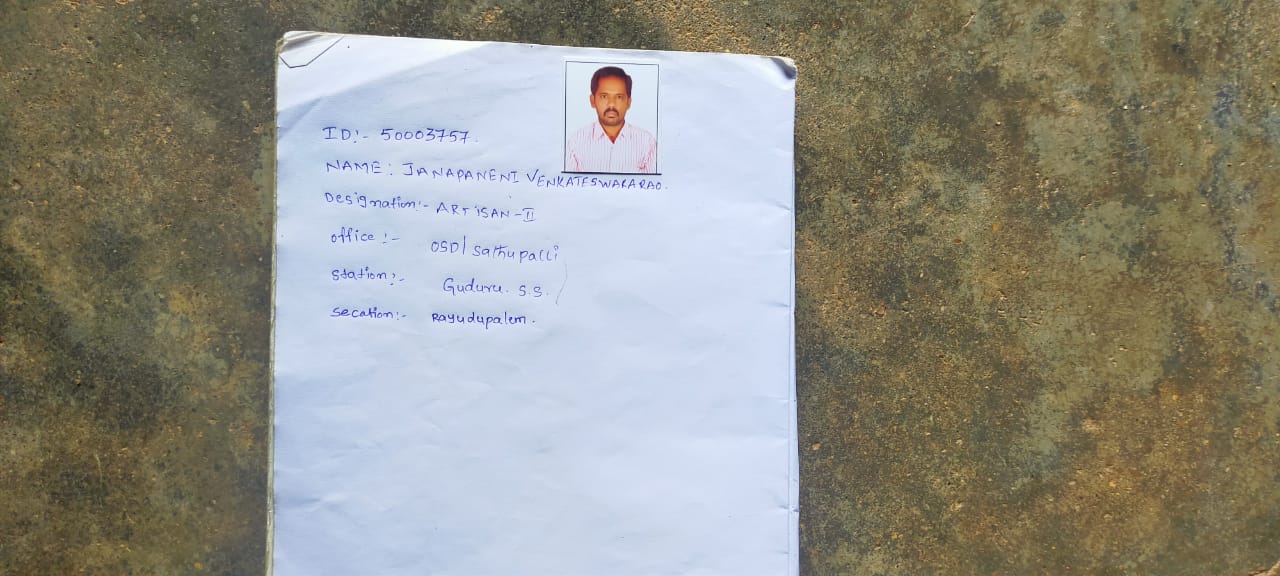 ID:- 50003757.
NAME: JANAPANENI VENKATESWARARAO.
Designation:- ARTISAN-II
office:- OSD/Sathupalli
Station:- Guduru. S.S.
Secation:- Rayudupalem.